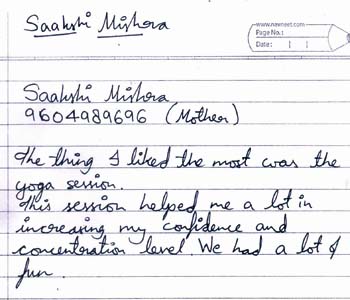 Saakshi Mishra
www.navneet.com
Page No.:
Date:
Saakshi Mishra
9604989696 (Mother)
The thing I liked the most was the
yoga session.
This session helped me a lot in
increasing my confidence and
concentration level. We had a lot of
fun.